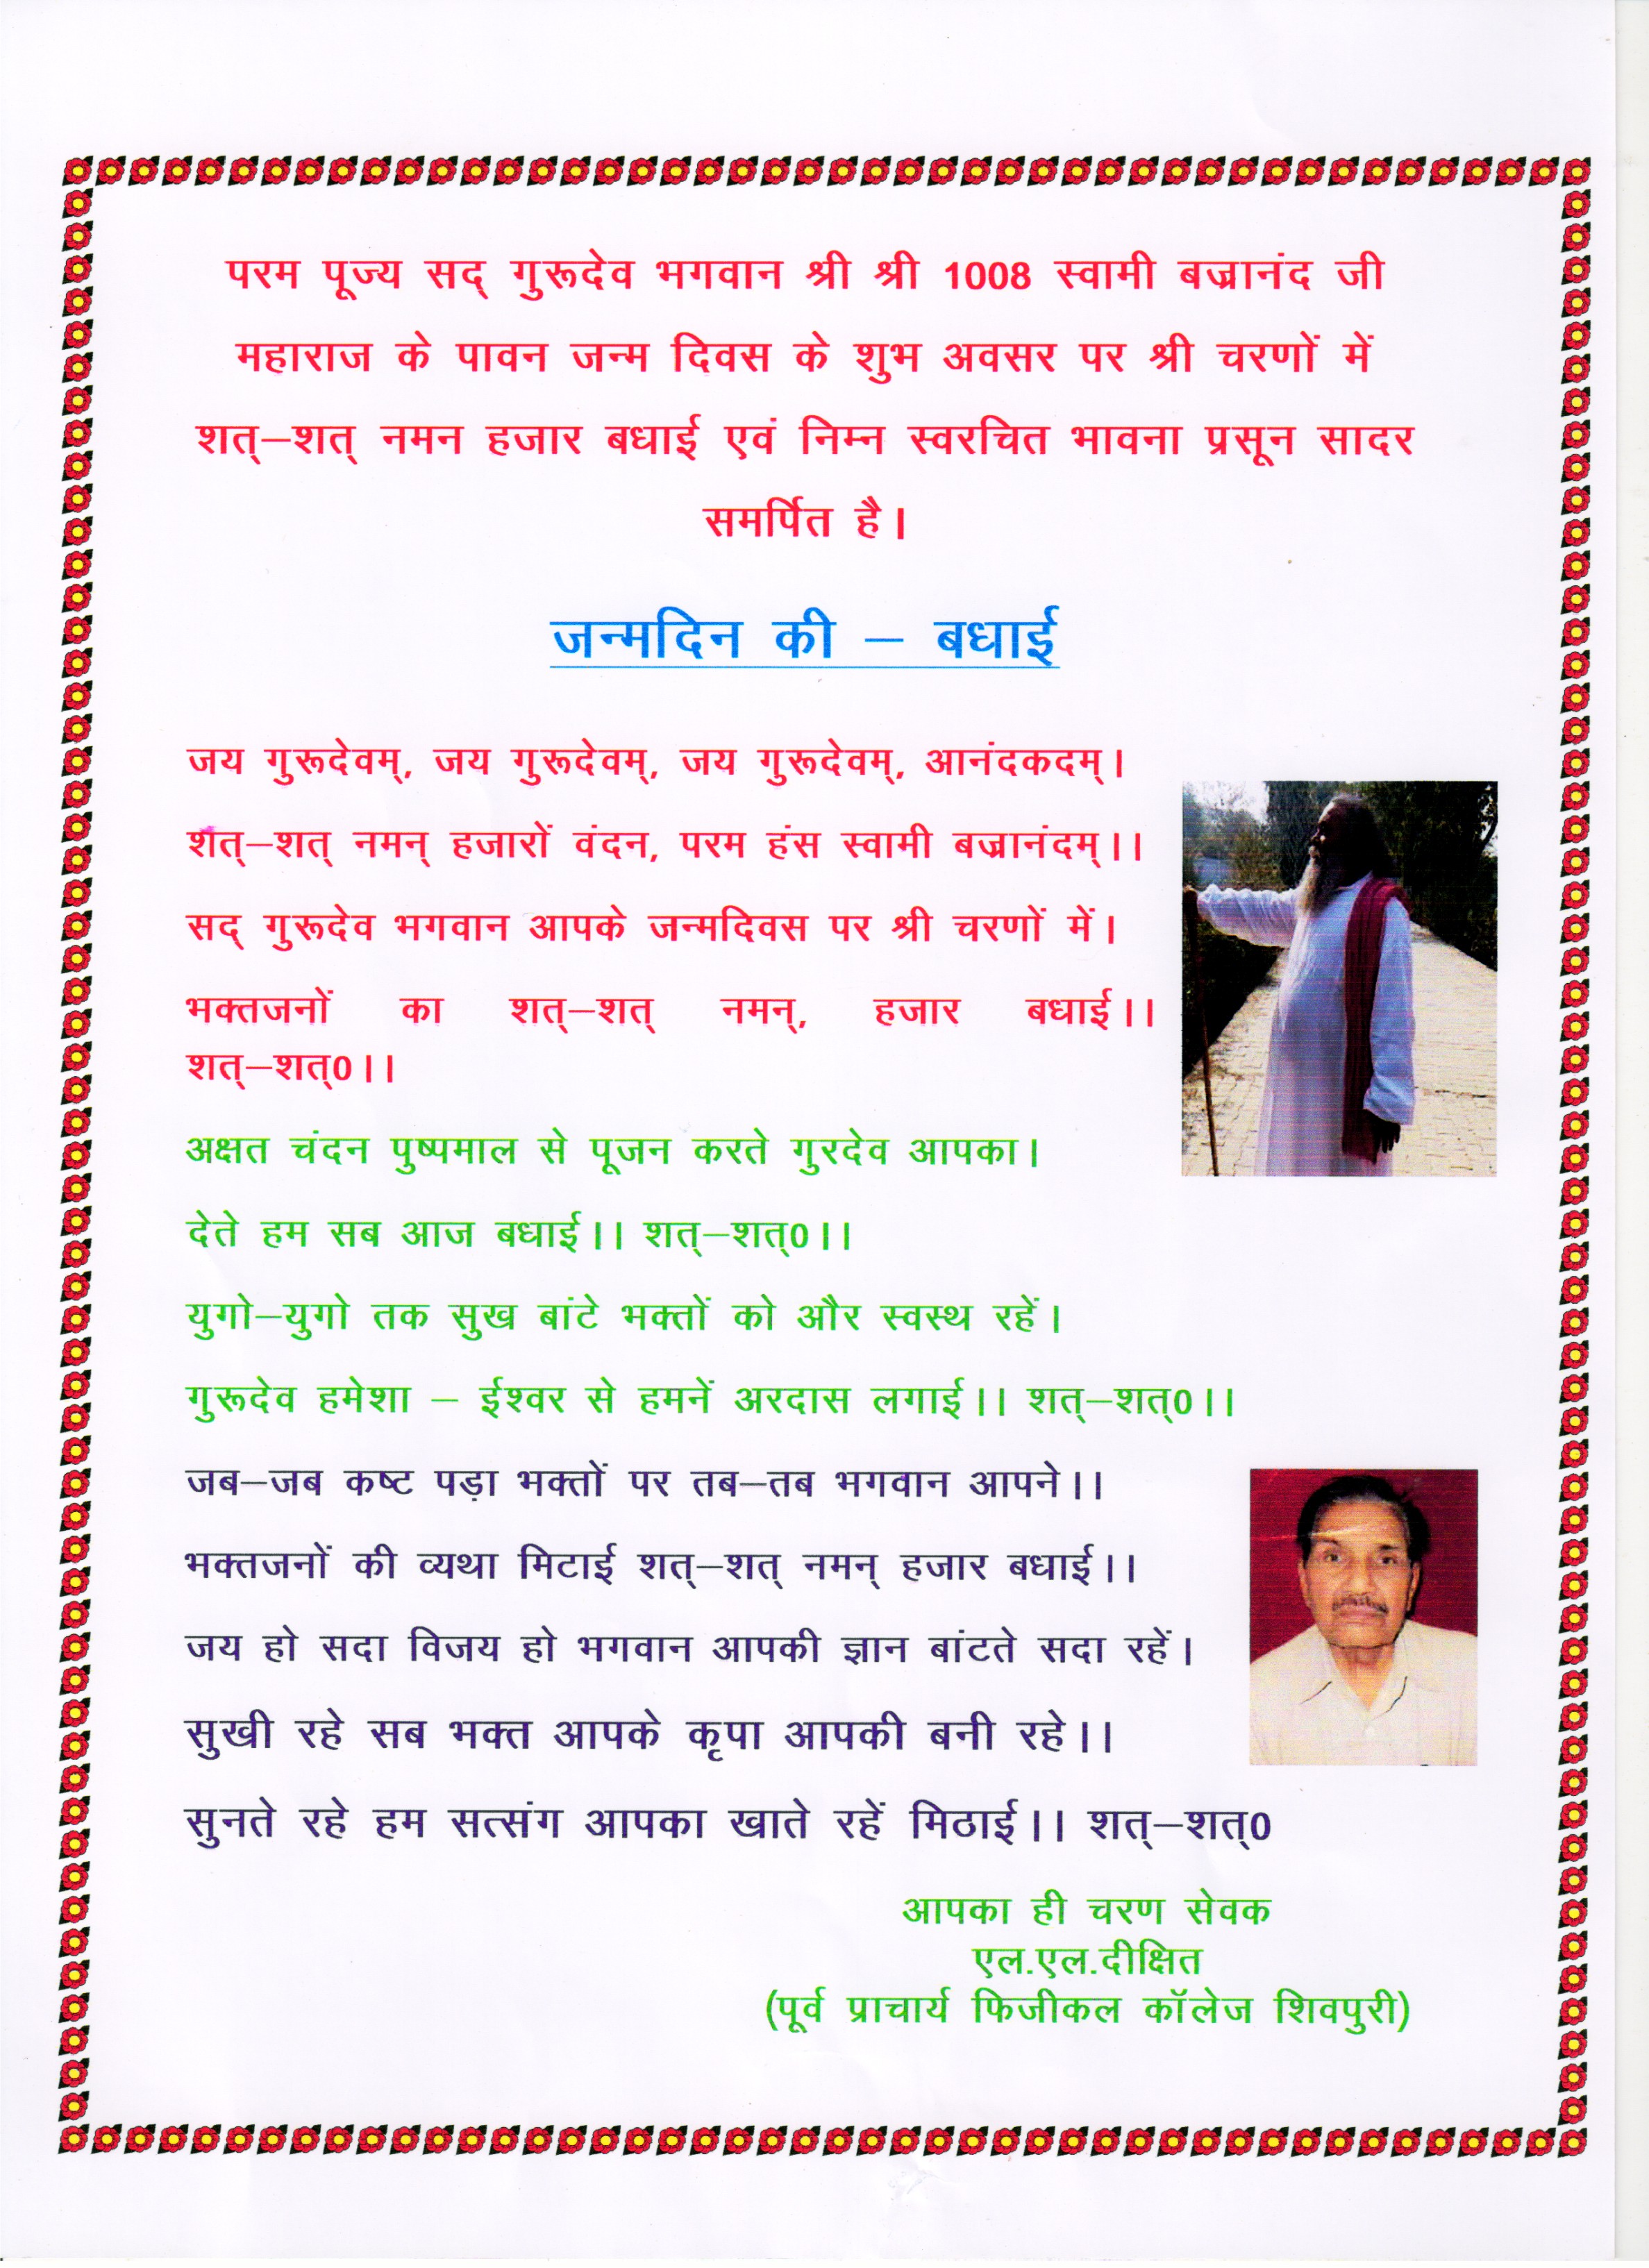 परम पूज्य सद् गुरूदेव भगवान श्री श्री 1008 स्वामी बज्रानंद जी
महाराज के पावन जन्म दिवस के शुभ अवसर पर श्री चरणों में
शत्–शत् नमन हजार बधाई एवं निम्न स्वरचित भावना प्रसून सादर
समर्पित है।
जन्मदिन की – बधाई
जय गुरूदेवम्, जय गुरूदेवम्, जय गुरूदेवम्, आनंदकदम्।
शत्–शत् नमन् हजारों वंदन, परम हंस स्वामी बज्रानंदम्।।
सद् गुरूदेव भगवान आपके जन्मदिवस पर श्री चरणों में।
भक्तजनों का शत्–शत् नमन्, हजार बधाई।।
शत्–शत्0।।
अक्षत चंदन पुष्पमाल से पूजन करते गुरदेव आपका।
देते हम सब आज बधाई।। शत्–शत्0।।
युगो–युगो तक सुख बांटे भक्तों को और स्वस्थ रहें।
गुरूदेव हमेशा – ईश्वर से हमनें अरदास लगाई।। शत्–शत्0।।
जब–जब कष्ट पड़ा भक्तों पर तब–तब भगवान आपने।।
भक्तजनों की व्यथा मिटाई शत्–शत् नमन् हजार बधाई।।
जय हो सदा विजय हो भगवान आपकी ज्ञान बांटते सदा रहें।
सुखी रहे सब भक्त आपके कृपा आपकी बनी रहे।।
सुनते रहे हम सत्संग आपका खाते रहें मिठाई।। शत्–शत्0
आपका ही चरण सेवक
एल.एल.दीक्षित
(पूर्व प्राचार्य फिजीकल कॉलेज शिवपुरी)